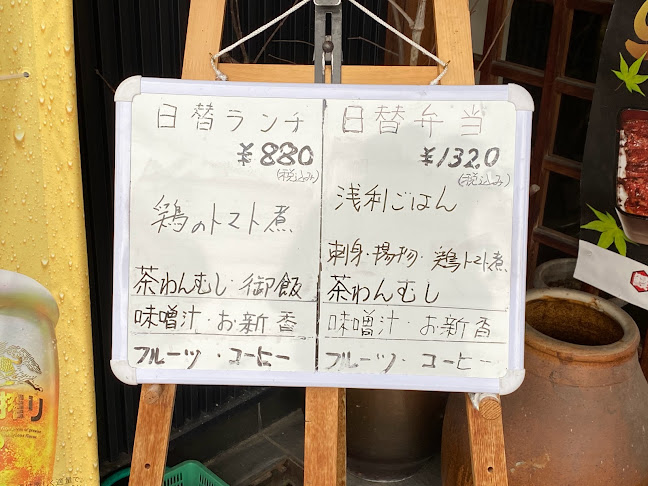 日替ランチ
¥880
(税込み)
鶏のトマト煮
茶わんむし・御飯
味噌汁・お新香
フルーツ・コーヒー
日替弁当
¥1320
(税込み)
浅利ごはん
刺身・揚物・鶏トマト煮
茶わんむし
味噌汁・お新香
フルーツ・コーヒー
搾り